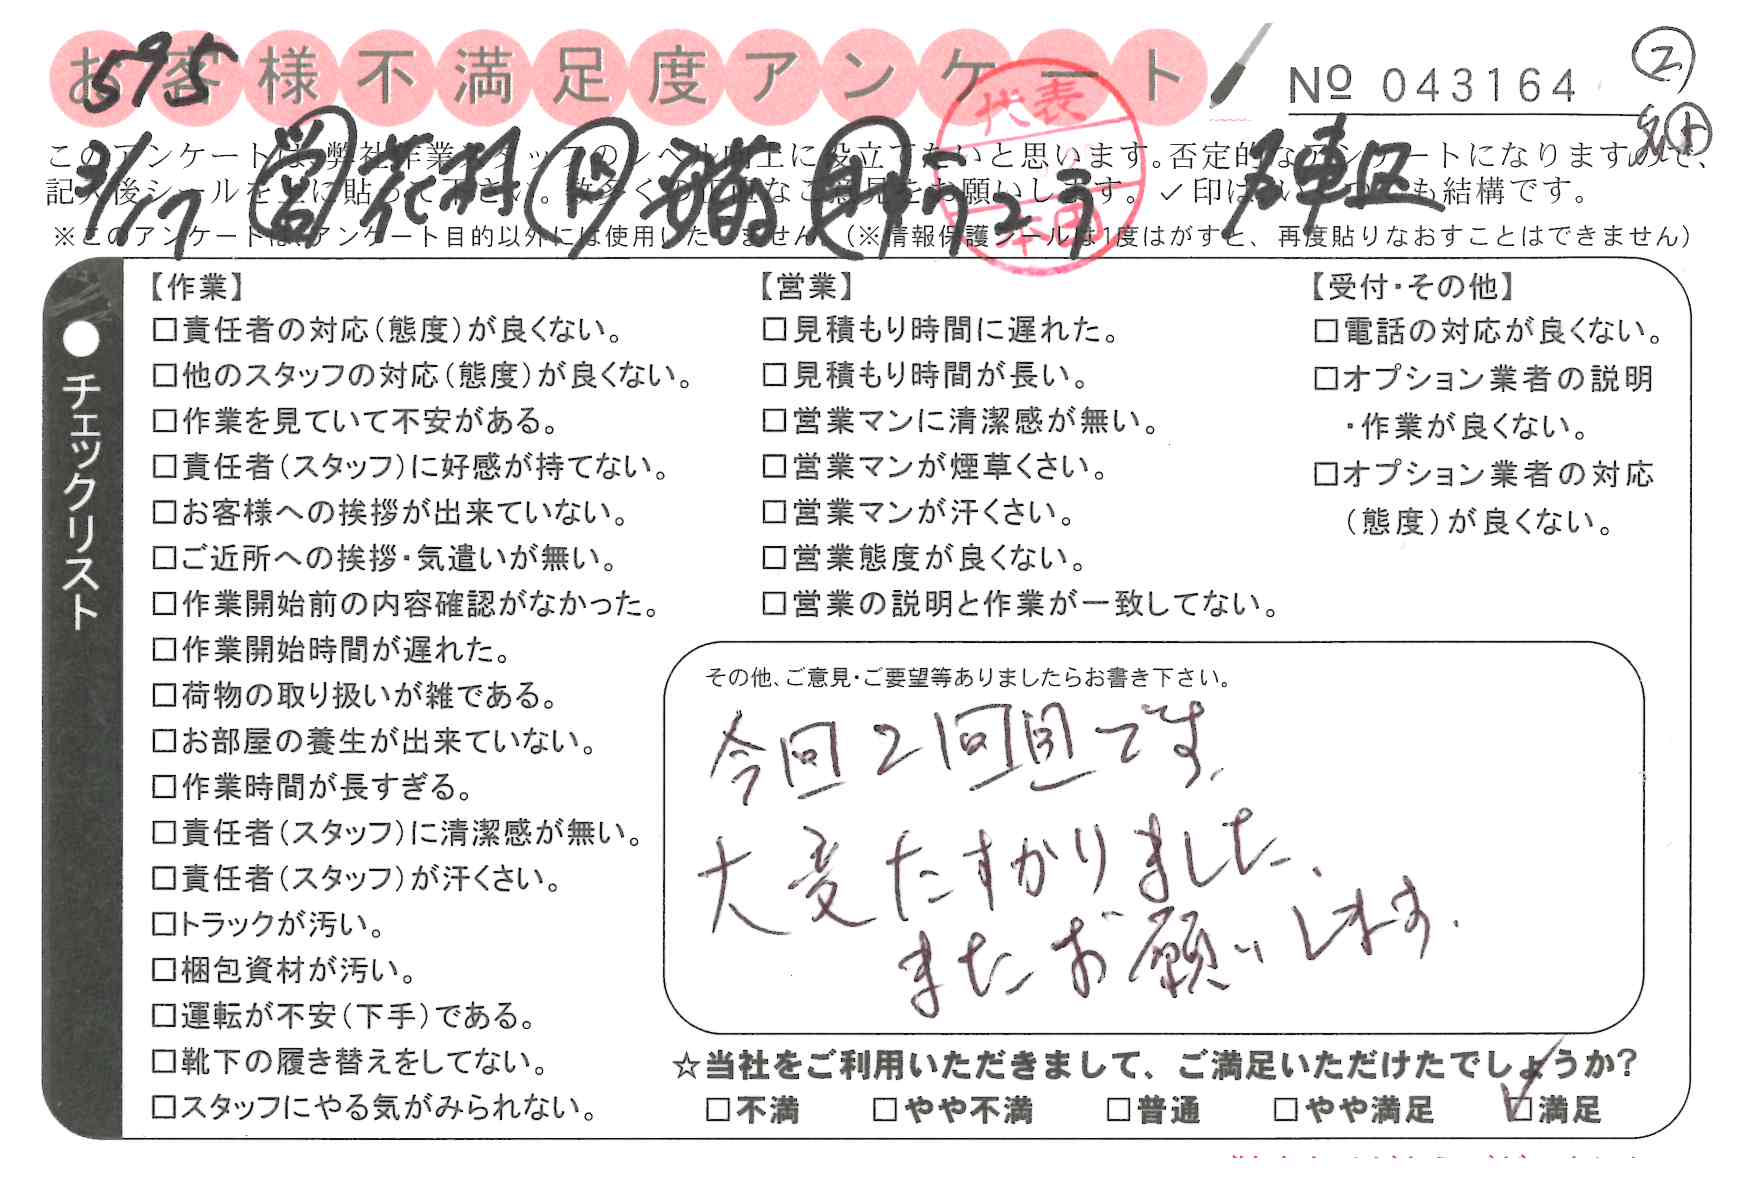 お客様不満足度アンケート
595
Nº 043164
2
このアンケートは、弊社作業スタッフのレベル向上に役立てたいと思います。否定的なアンケートになりますので、
記入後シールを上に貼って下さい。数多くの正直なご意見をお願いします。✓印はいくつでも結構です。
※このアンケートは、アンケート目的以外には使用いたしません。(※情報保護シールは1度はがすと、再度貼りなおすことはできません)
3/17 営 花村
代表
本田
●チェックリスト
【作業】
□責任者の対応(態度)が良くない。
□他のスタッフの対応(態度)が良くない。
□作業を見ていて不安がある。
□責任者(スタッフ)に好感が持てない。
□お客様への挨拶が出来ていない。
□ご近所への挨拶・気遣いが無い。
□作業開始前の内容確認がなかった。
□作業開始時間が遅れた。
□荷物の取り扱いが雑である。
□お部屋の養生が出来ていない。
□作業時間が長すぎる。
□責任者(スタッフ)に清潔感が無い。
□責任者(スタッフ)が汗くさい。
□トラックが汚い。
□梱包資材が汚い。
□運転が不安(下手)である。
□靴下の履き替えをしてない。
□スタッフにやる気がみられない。
【営業】
□見積もり時間に遅れた。
□見積もり時間が長い。
□営業マンに清潔感が無い。
□営業マンが煙草くさい。
□営業マンが汗くさい。
□営業態度が良くない。
□営業の説明と作業が一致してない。
【受付・その他】
□電話の対応が良くない。
□オプション業者の説明
・作業が良くない。
□オプション業者の対応
(態度)が良くない。
その他、ご意見・ご要望等ありましたらお書き下さい。
今回2回目です。
大変たすかりました、
またお願いします。
☆当社をご利用いただきまして、ご満足いただけたでしょうか?
□不満 □やや不満 □普通 □やや満足 ☑満足